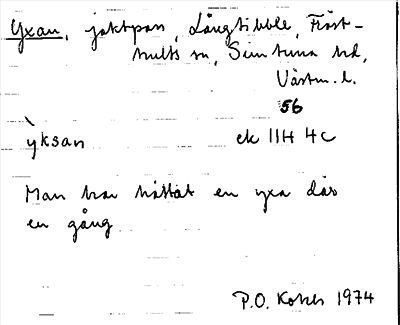 Yxan, jaktpass, Långtibble, Fröst-
hults sn, Simtuna hd,
Västm. l.
56
ỳksan ek 11H 4c
Man har hittat en yxa där
en gång
P.O. 1974